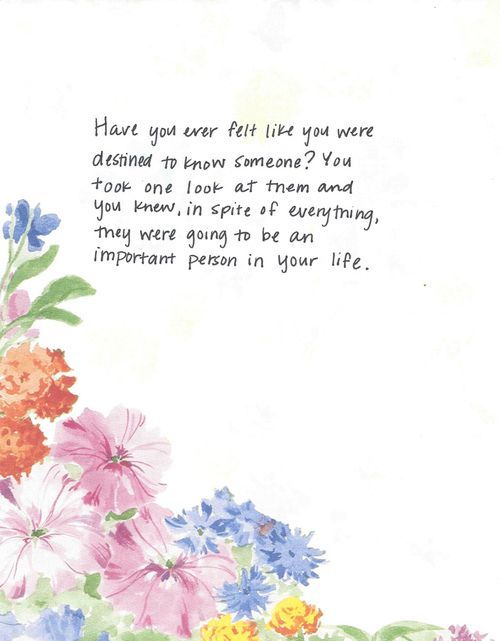 Have you ever felt like you were
destined to know someone? You
took one look at them and
you knew, in spite of everything,
they were going to be an
important person in your life.